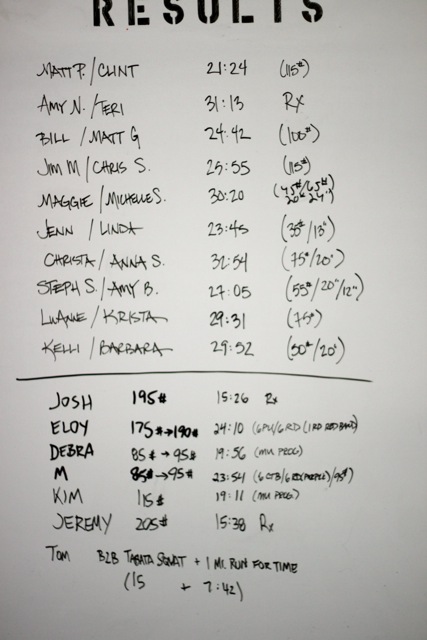 RESULTS
MATT P. / CLINT 21:24 (115#)
AMY N. / TERI 31:13 Rx
BILL / MATT G 24:42 (100#)
JIM M / CHRIS S. 25:55 (115#)
MAGGIE / MICHELLE S. 30:20 (45#/65# 20" 24")
JENN / LINDA 23:45 (35#/13")
CHRISTA / ANNA S. 32:54 (75#/20")
STEPH S. / AMY B. 27:05 (55#/20"/12")
LUANNE / KRISTA 29:31 (75#)
KELLI / BARBARA 29:52 (50#/20")
JOSH 195# 15:26 Rx
ELOY 175#→190# 24:10 (6PU/6RD (1RD RED BAND)
DEBRA 85#→95# 19:56 (MU PROG)
M 85#→95# 23:54 (6 CTB/6 RD(PURPLE)/95#)
KIM 115# 19:11 (MU PROG)
JEREMY 205# 15:38 Rx
TOM B2B TABATA SQUAT + 1 MI. RUN FOR TIME
(15 + 7:42)